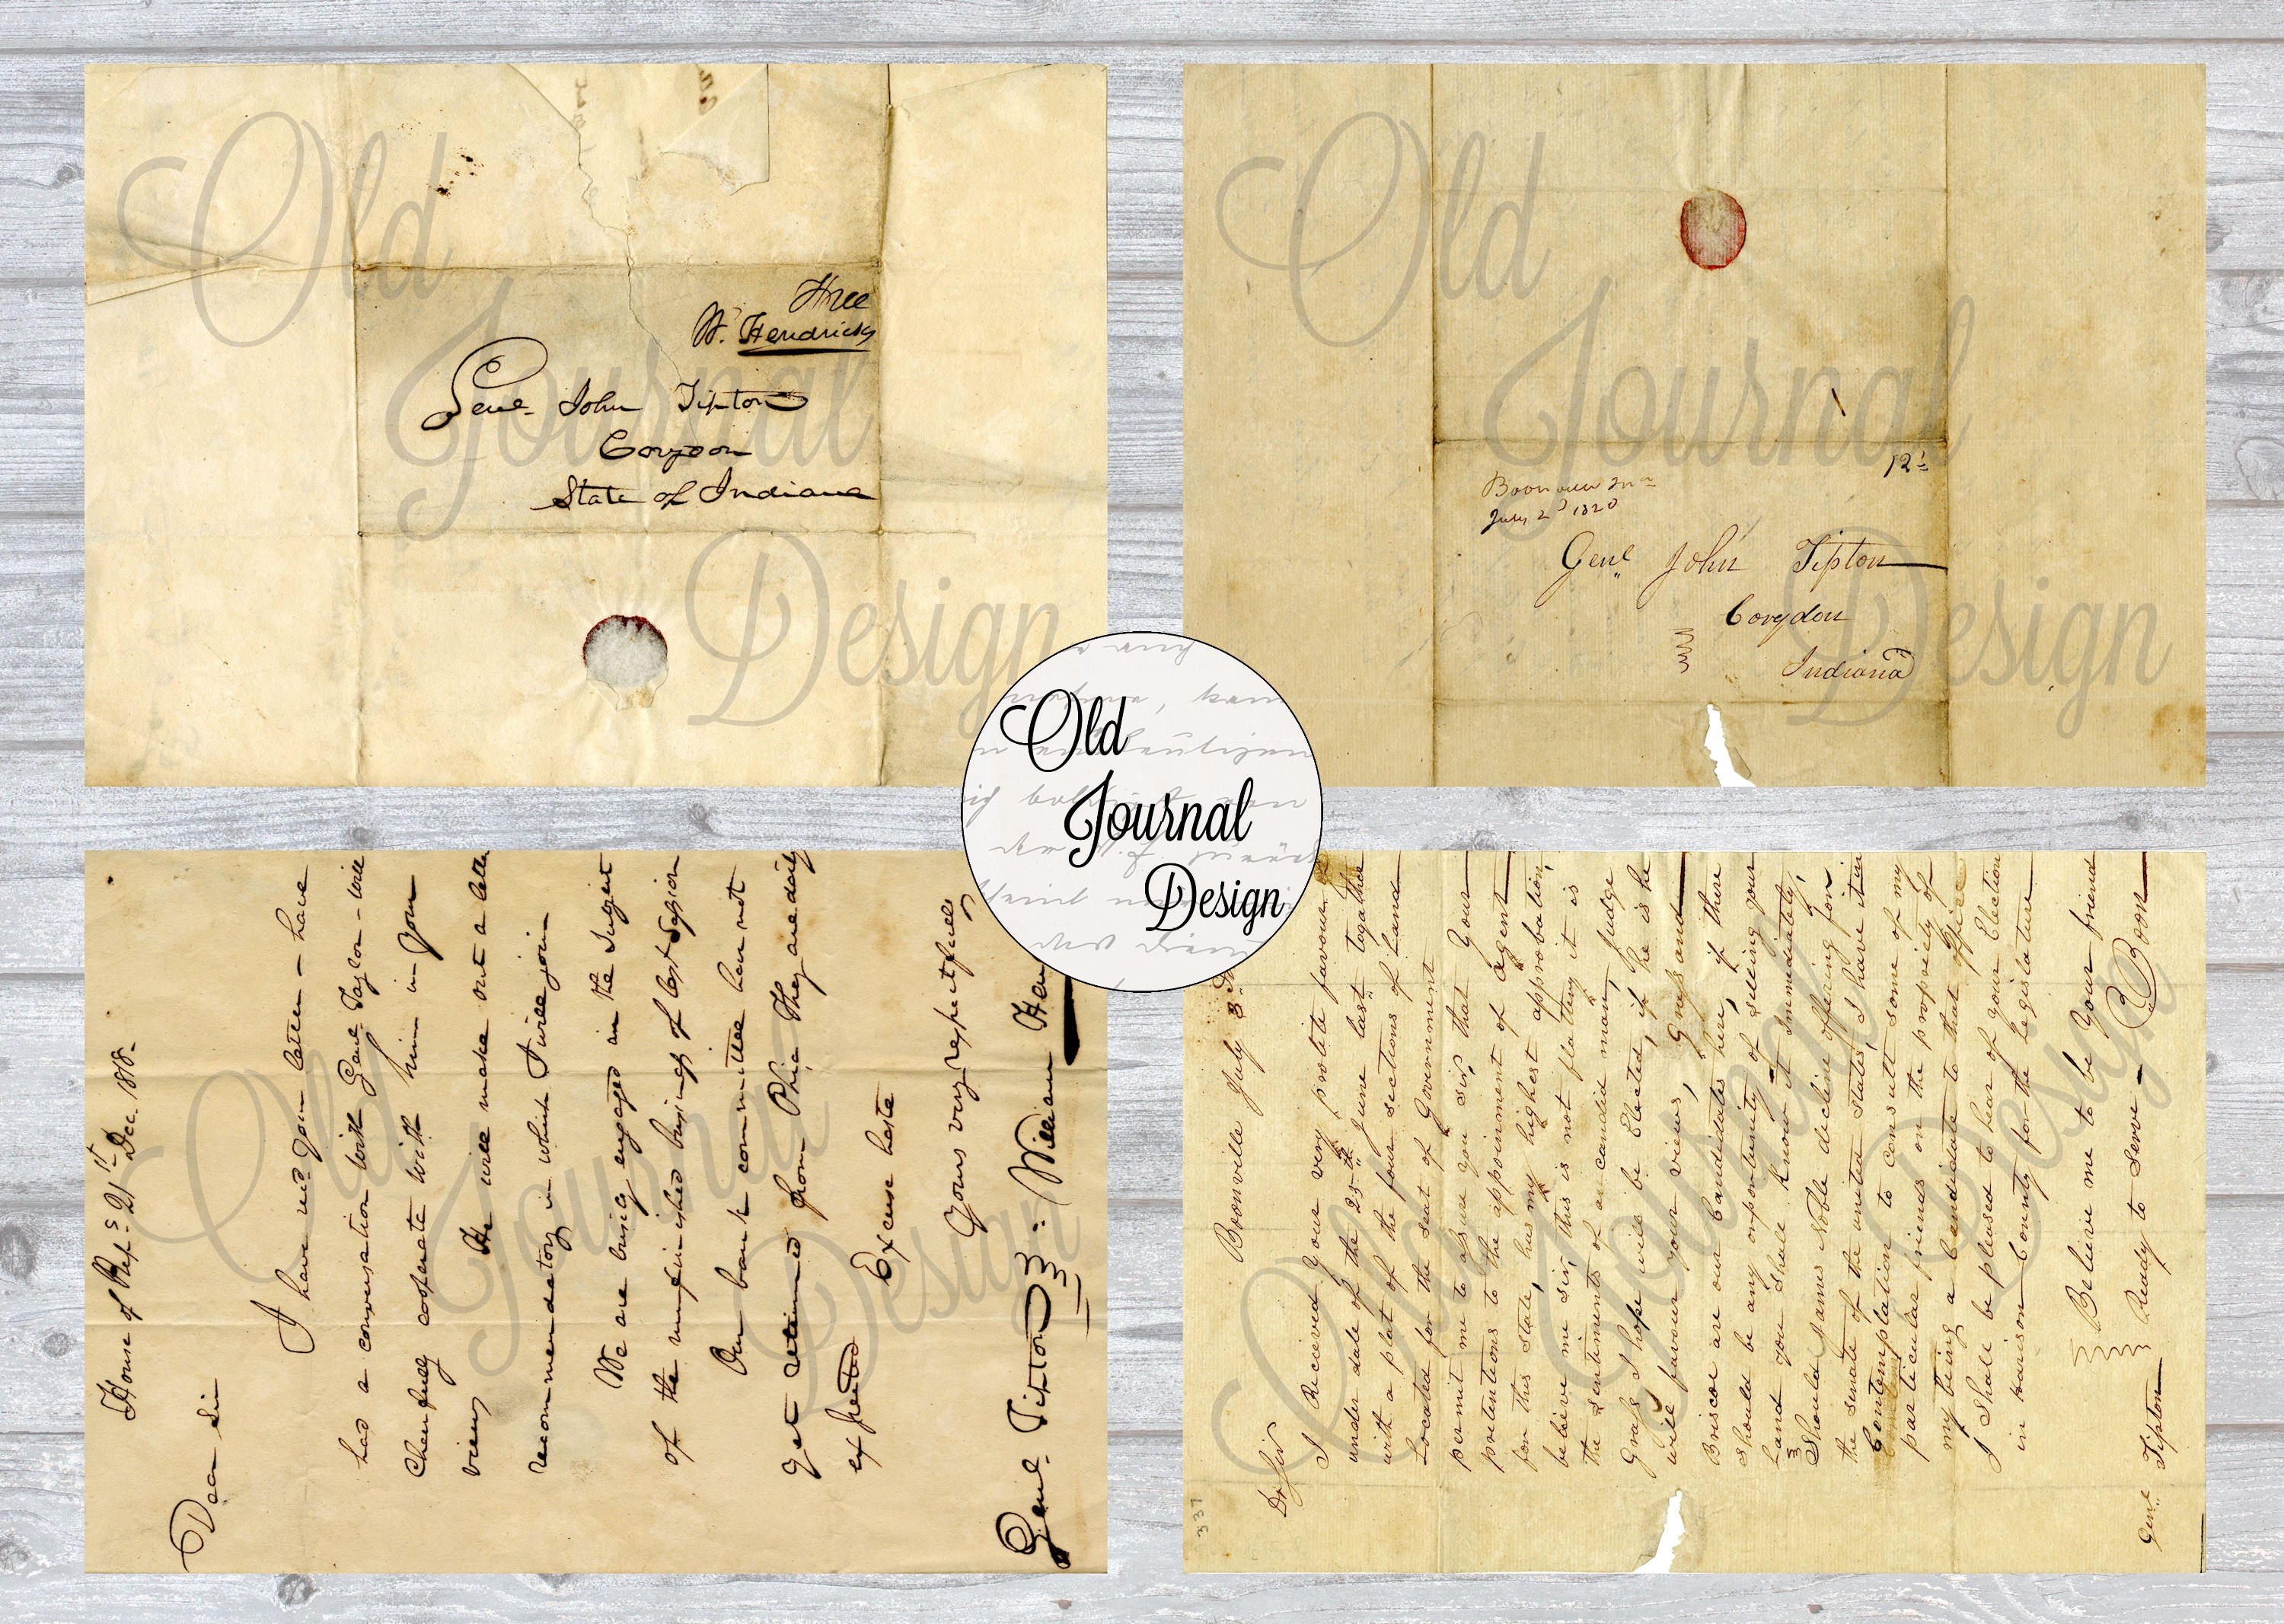 Free
W. Hendricks
Genl. John Tipton
Corydon
State of Indiana
12½
July 2d 1820
Genl John Tipton
Corydon
Indiana
Old
Journal
Design
House of Reps 21st Dec. 1818.
Dear Sir
I have recd your letter - have
had a conversation with Genl Taylor - will
Chearfully cooperate with him in your
views He will make out a letter
recommendatory in which I will join
We are busily engaged in the
of the unfinished business of last Session
Our bank committee have not
yet returned from Phia They are daily
expected Excuse haste
Yours very respectfully
Genl. Tipton William Hen
337
Boonville July 3
Dr Sir
I Recieved your very polite favour
under date of the 25th June last togather
with a plat of the four sections of Land
Located for the seat of Government
permit me to asure you sir, that your
pretentions to the appointment of agent
for this state, has my highest approbation,
believe me sir, this is not flattery it is
the sentiments of a candid man, Judge
Grass I hope will be Elected, if he is he
will favour your views, Grass and
Briscoe are our Candidates here, if there
should be any opportunity of selling your
Land you shall know it immediately,
Should James Noble decline offering for
the senate of the united states, I have it in
Contemplation to consult some of my
particular friends on the propriety of
my being a Candidate to that office
I Shall be pleased to hear of your Election
in harison County for the Legislature
Believe me to be your friend
Ready to serve - Boon
Genl Tipton